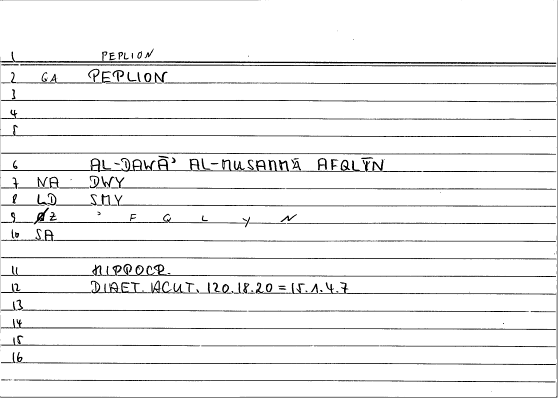 1 PEPLION
2 GA PEPLION
3
4
5
6 AL-DAWĀʾ AL-MUSAMMĀ AFQLȲN
7 NA DWY
8 LD SMY
9 ØZ ʾ F Q L Y N
10 SA
11 HIPPOCR.
12 DIAET. ACUT. 120.18.20 = 15.1.4.7
13
14
15
16